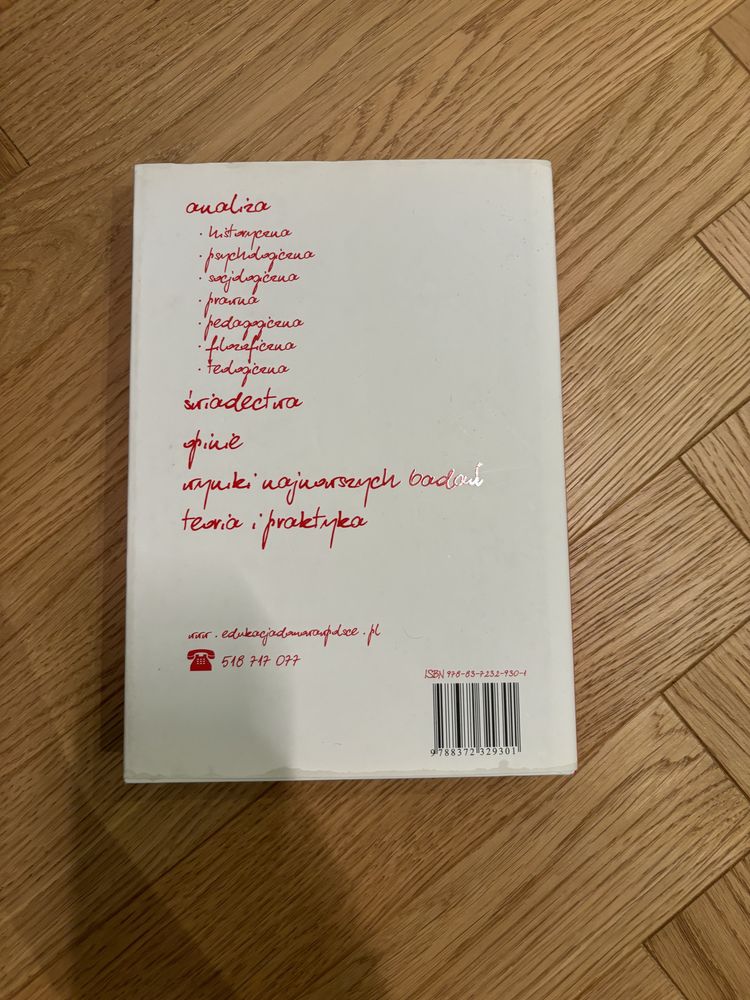 analiza
· historyczna
· psychologiczna
· socjologiczna
· prawna
· pedagogiczna
· filozoficzna
· teologiczna
świadectwa
opinie
wyniki najnowszych badań
teoria i praktyka
www.edukacjadomowawpolsce.pl
518 717 077
ISBN 978-83-7232-930-1
9 788372 329301